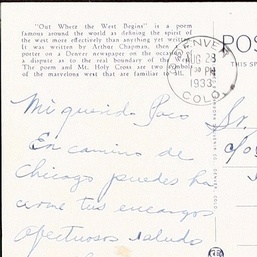 "Out Where the West Begins" is a poem
famous around the world as defining the spirit of
the west more effectively than anything yet written.
It was written by Arthur Chapman, then a
porter on a Denver newspaper on the occasion of
a dispute as to the real boundary of the
The poem and Mt. Holy Cross are two symbols
of the marvelous west that are familiar to all.
DENVER
AUG 28
PM
1933
COLO
POS
THIS SP
Mi querido Paco
En camino de
Chicago puedes ha
cerme tus encargos
Afectuosos saludos
Sr.
c/o